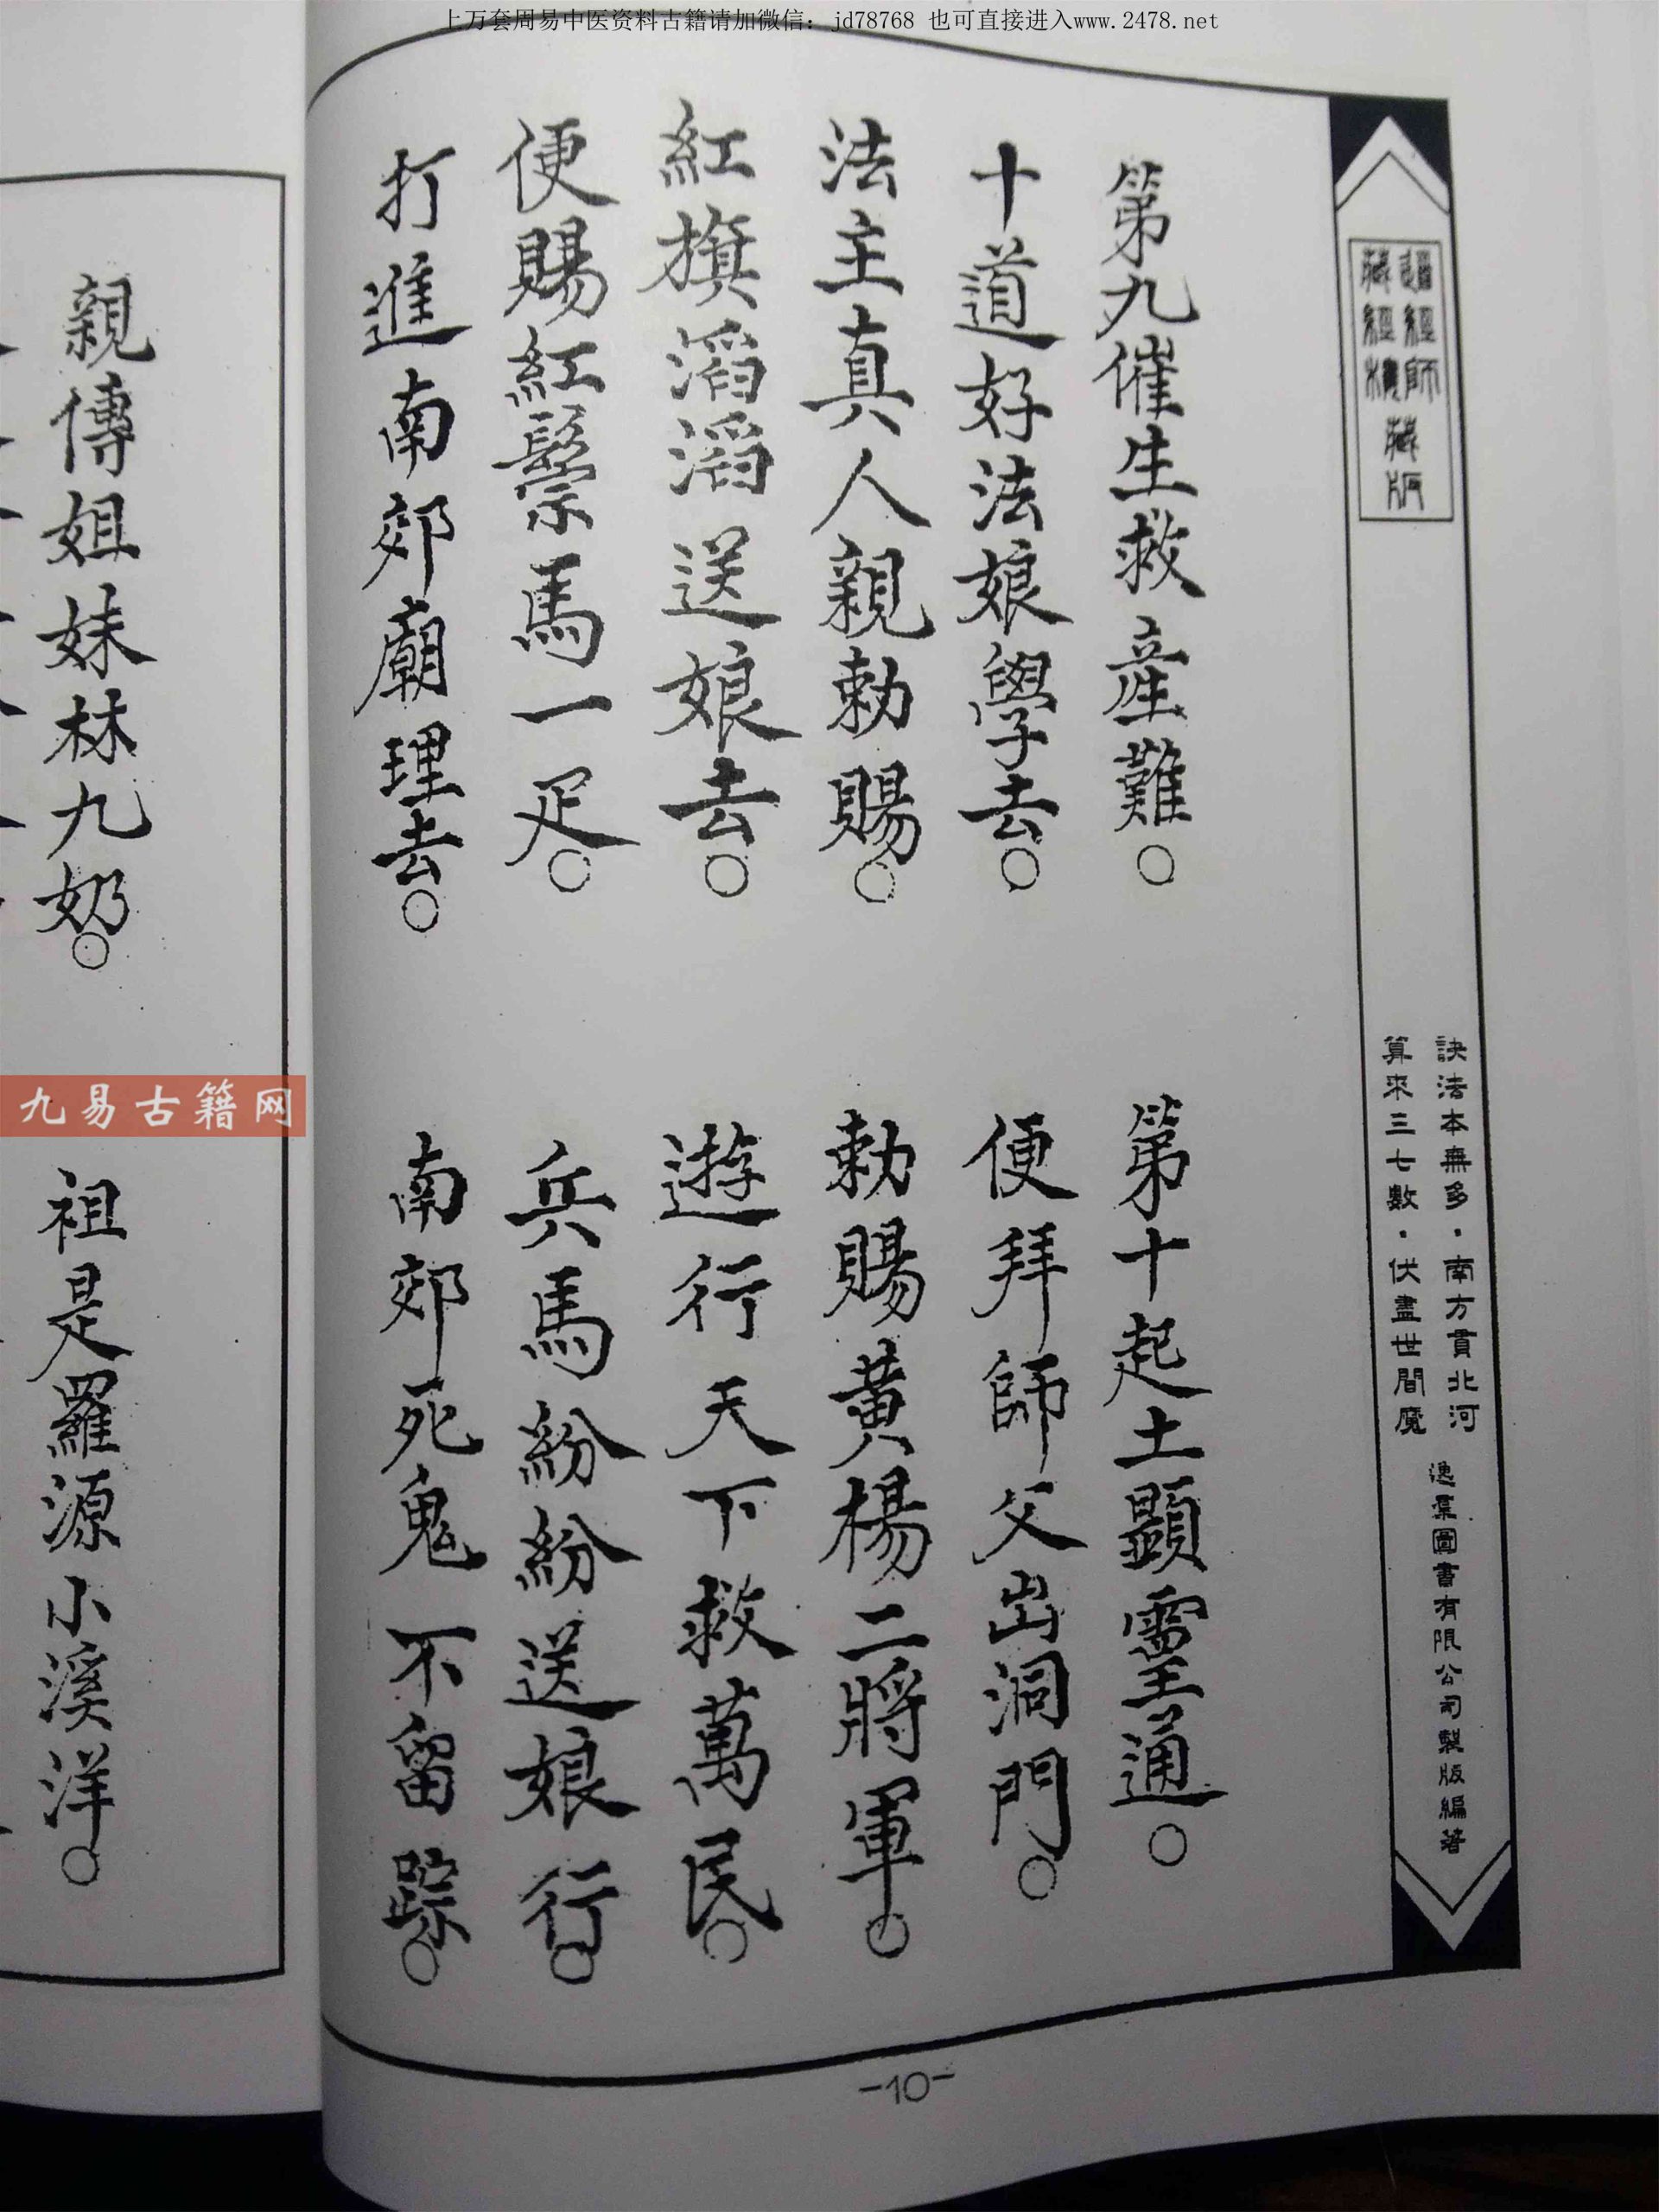 上万套周易中医资料古籍请加微信：jd78768 也可直接进入www.2478.net
藏版
訣法本無多·南方貫北河
算來三七數·伏盡世間魔
逸羣圖書有限公司製版編著
第九催生救產難○
第十起土顯靈通○
十道好法娘學去○
便拜師父出洞門○
法主真人親勅賜○
勅賜黃楊二將軍○
紅旗滔滔送娘去○
遊行天下救萬民○
便賜紅鬃馬一疋○
兵馬紛紛送娘行○
打進南郊廟理去○
南郊死鬼不留踪○
-10-
親傳姐妹林九奶○
祖是羅源小溪洋○
九易古籍网